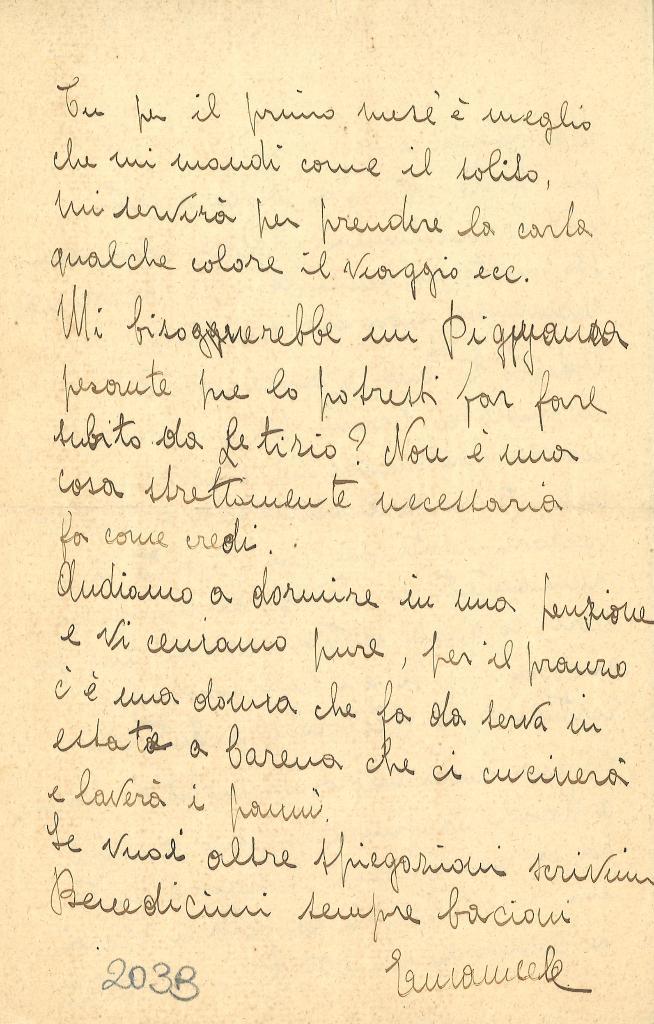 Tu per il primo mese è meglio
che mi mandi come il solito,
mi servirà per prendere la carta
qualche colore il viaggio ecc.
Mi bisognerebbe un Pigyama
pesante me lo potresti far fare
subito da Letizio? Non è una
cosa strettamente necessaria
fa come credi.
Andiamo a dormire in una penzione
e vi ceniamo pure, per il pranzo
c'è una donna che fa da serva in
estate a Carena che ci cucinerà
e laverà i panni.
Se vuoi altre spiegazioni scrivimi
Benedicimi sempre bacioni
Emanuele
203B